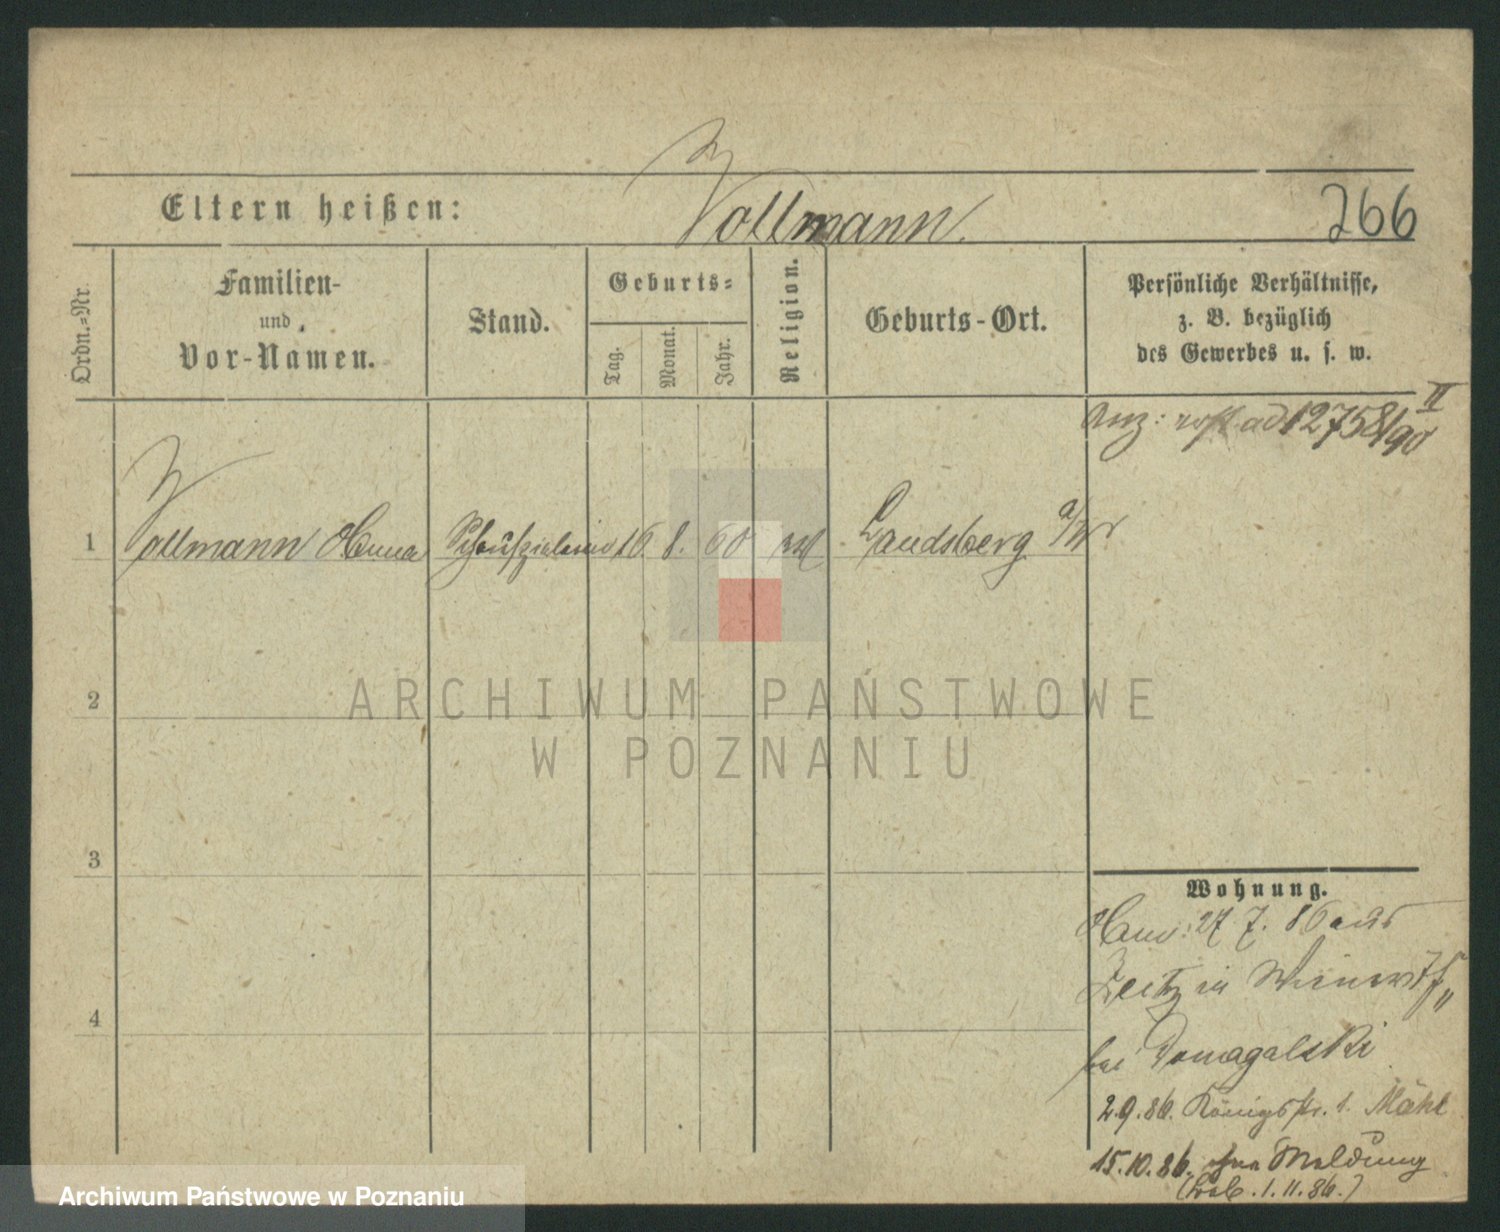 Eltern heißen: Vollmann. 266
Ordn.=Nr.
Familien-
und
Vor-Namen.
Stand.
Geburts=
Tag.
Monat.
Jahr.
Religion.
Geburts-Ort.
Persönliche Verhältnisse,
z. B. bezüglich
des Gewerbes u. s. w.
II
12758/90
1 Vollmann Anna Schauspielerin 16 8. 60 Landsberg a/W
2
3
4
Wohnung.
27 7. 86 aus
Zeitz in
bei Domagalski
2.9.86. Königsstr. 1.
15.10.86. ohne Meldung
1.11.86.)
ARCHIWUM PAŃSTWOWE
W POZNANIU
Archiwum Państwowe w Poznaniu